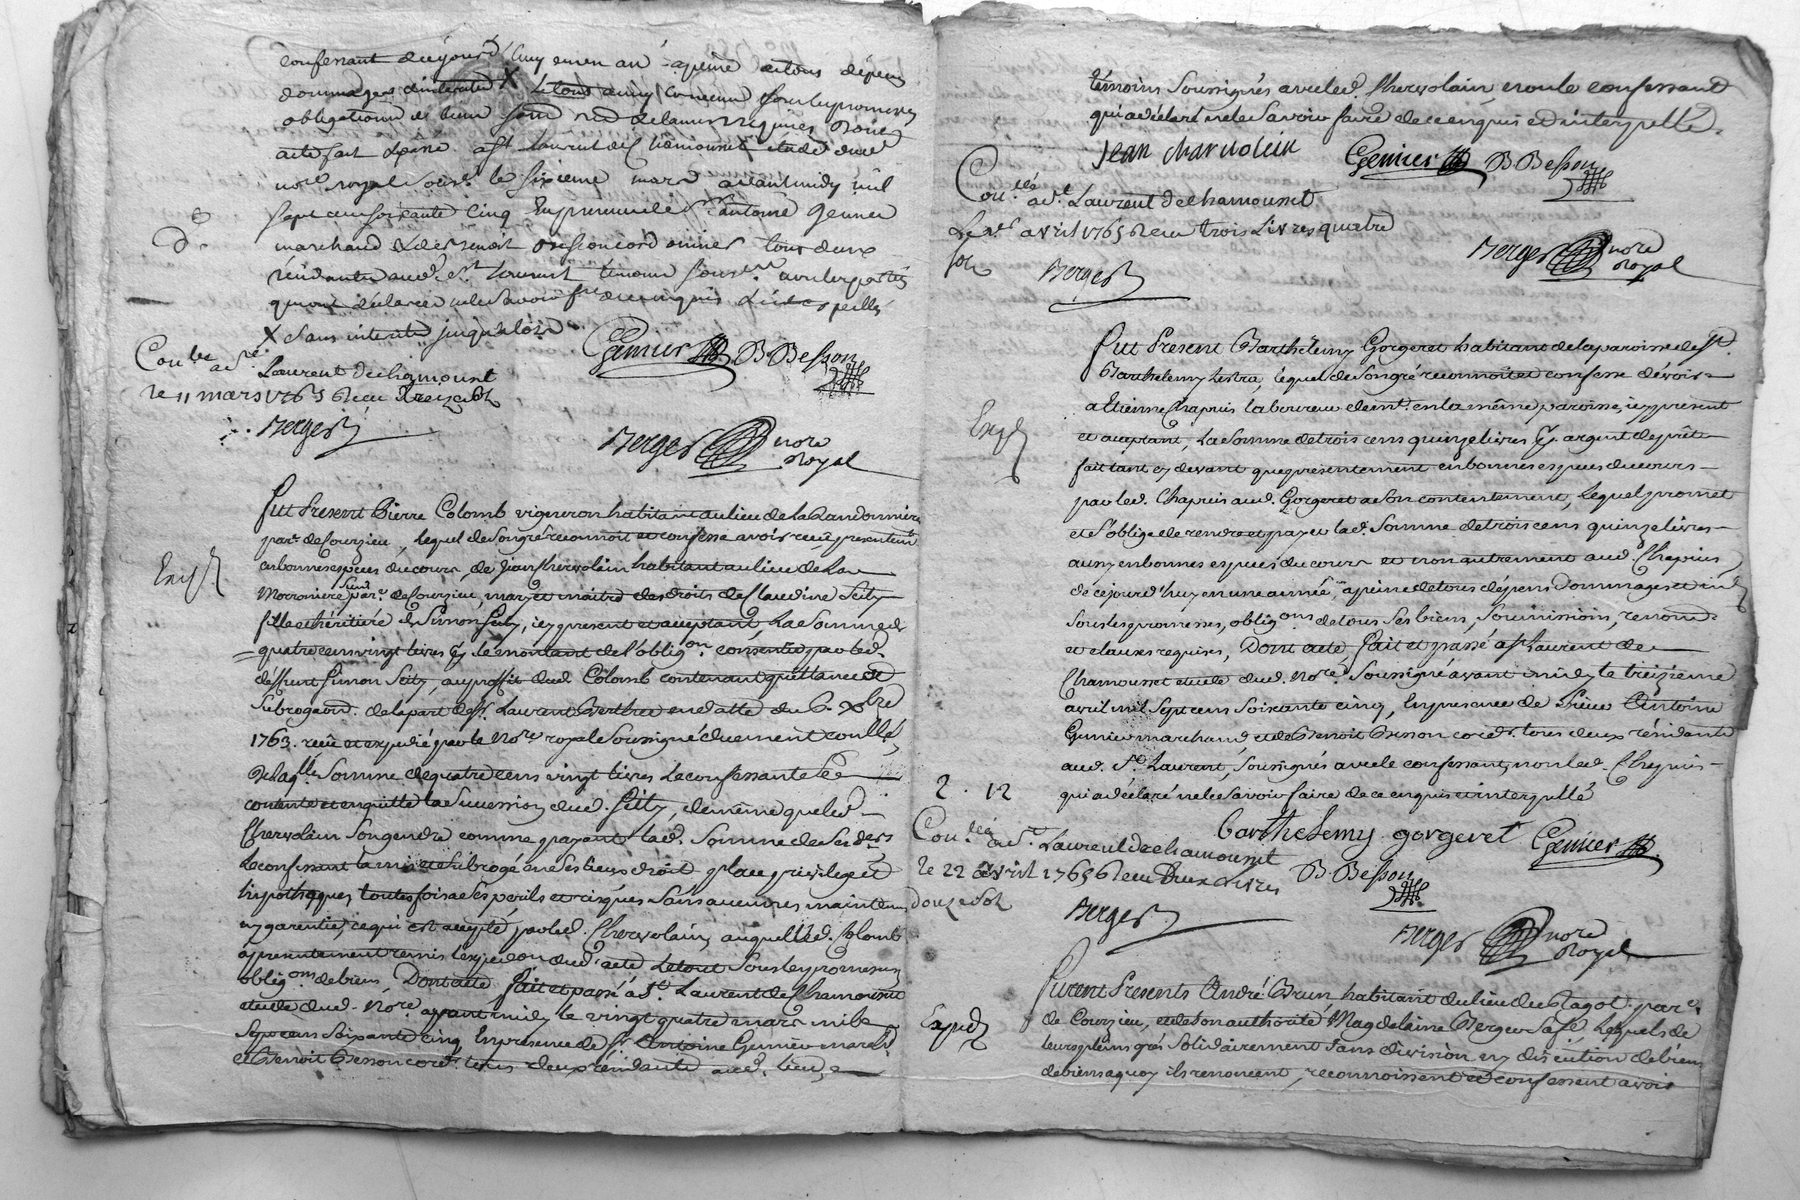 confessant du jour d'huy en un an a peine de tous depens
dommages interets X Le tout ainsy convenu sous les promesses
obligations de biens
acte fait & passé a St Laurent de Chamousset etude dud
nore royal sousé le sixieme mars avant midy mil
sept cens soixante cinq En presence de Sr antoine Genier
marchand & de benoit Besson cordonnier tous deux
résidants aud. St Laurent témoins sous
qui ont déclaré ne le savoir fre de ce enquis & interpellés
X sans interets jusqu'alors
Genier B Besson
Con.lé a St. Laurent de chamousset
le 11 mars 1765 Receu treize sols
Berger
Berger nore Royal
Fut Present Pierre Colomb vigneron habitant au lieu de La Randonniere
parr. de Courzieu, lequel de son gré reconnoit et confesse avoir reçu présentemt.
en bonnes espèces du cours, de Jean Chervolain habitant au lieu de La
Exp
Morroniere susd. parr. de Courzieu, mary et maitre des droits de Claudine Seity
fille et héritière de Simon Seity, icy present et acceptant, La somme de
quatre cens vingt livres Ez le montant de l'oblig.on consentie par led.
déffunt Simon Seity, au proffit dud. Colomb contenant quittance et
subrogaon. de la part de Sr. Laurent Berthet en datte du 6. Xbre
1763. reçue et expedié par le Nore. royal soussigné duement conllé,
De laqlle somme de quatre cens vingt livres Le confessant se
contente et en quitte la succession dud. Seity, de même que led.
Chervolain son gendre comme payant lad. somme de ses drs.
Le confessant la mis et subrogé en ses lieux droit place privilege et
hipotheques toutes fois a ses perils et risques sans aucunes mainten
ny garentie, ce qui est accepté par led. Chervolain, auquel led. Colomb
a presentement remis l'expedion dud. acte Le tout sous les promesses
oblig.ons de biens, Dont acte fait et passé a St. Laurent de Chamousset
etude dud. Nore. avant midy le vingt quatre mars mil
sept cens soixante cinq En presence de Sr. Antoine Genier march
et Benoit Besson cord. tous deux résidants aud. lieu,
témoins soussignés avec led. Chervolain, non le confessant
qui a déclaré ne le savoir faire de ce enquis et interpellé.
Jean charvolein Genier B Besson
Con.lé a St. Laurent de chamousset
Le 1er avril 1765 Receu trois Livres quatre
sols
Berger
Berger nore Royal
Fut Present Barthelemy Gorgeret habitant de la paroisse de St.
Barthelemy Lestra, lequel de son gré reconnoit et confesse devoir
a Etienne Chapuis laboureur demt. en la même paroisse, icy présent
Exp
et acceptant, La somme de trois cens quinze livres Ez. argent de prêt
fait tant cy devant que presentement en bonnes especes du cours
par led. Chapuis aud. Gorgeret a son contentement, Lequel promet
et s'oblige de rendre et payer lad. somme de trois cens quinze livres
aussy en bonnes especes du cours et non autrement aud. Chapuis
de ce jourd'huy en une année, a peine de tous dépens dommages et in
sous les promesses, oblig.ons de tous ses biens, soumissions, renond.
et clauses requises, Dont acte fait et passé a St Laurent de
Chamousset etude dud. Nore. soussigné avant midy le treizieme
avril mil sept cens soixante cinq, En presence de Sieur Antoine
Genier marchand et de Benoit Besson cord. tous deux résidants
aud. St. Laurent, soussignés avec le confessant, non led. Chapuis
2. 12
qui a déclaré ne le savoir faire de ce enquis et interpellé
barthelemy gorgeret Genier
Con.lé a St. Laurent de chamousset
le 22 avril 1765 Receu Deux livres
B Besson
douze sols
Berger
Berger nore Royal
Furent Presents André Brun habitant du lieu du Ragot parr.
Expd
de Courzieu, et de son authorité Magdelaine Berger sa fe. Lesquels de
leurs pleins grés solidairement sans division ny discution de biens
de biens a quoy ils renoncent, reconnoissent et confessent avoir